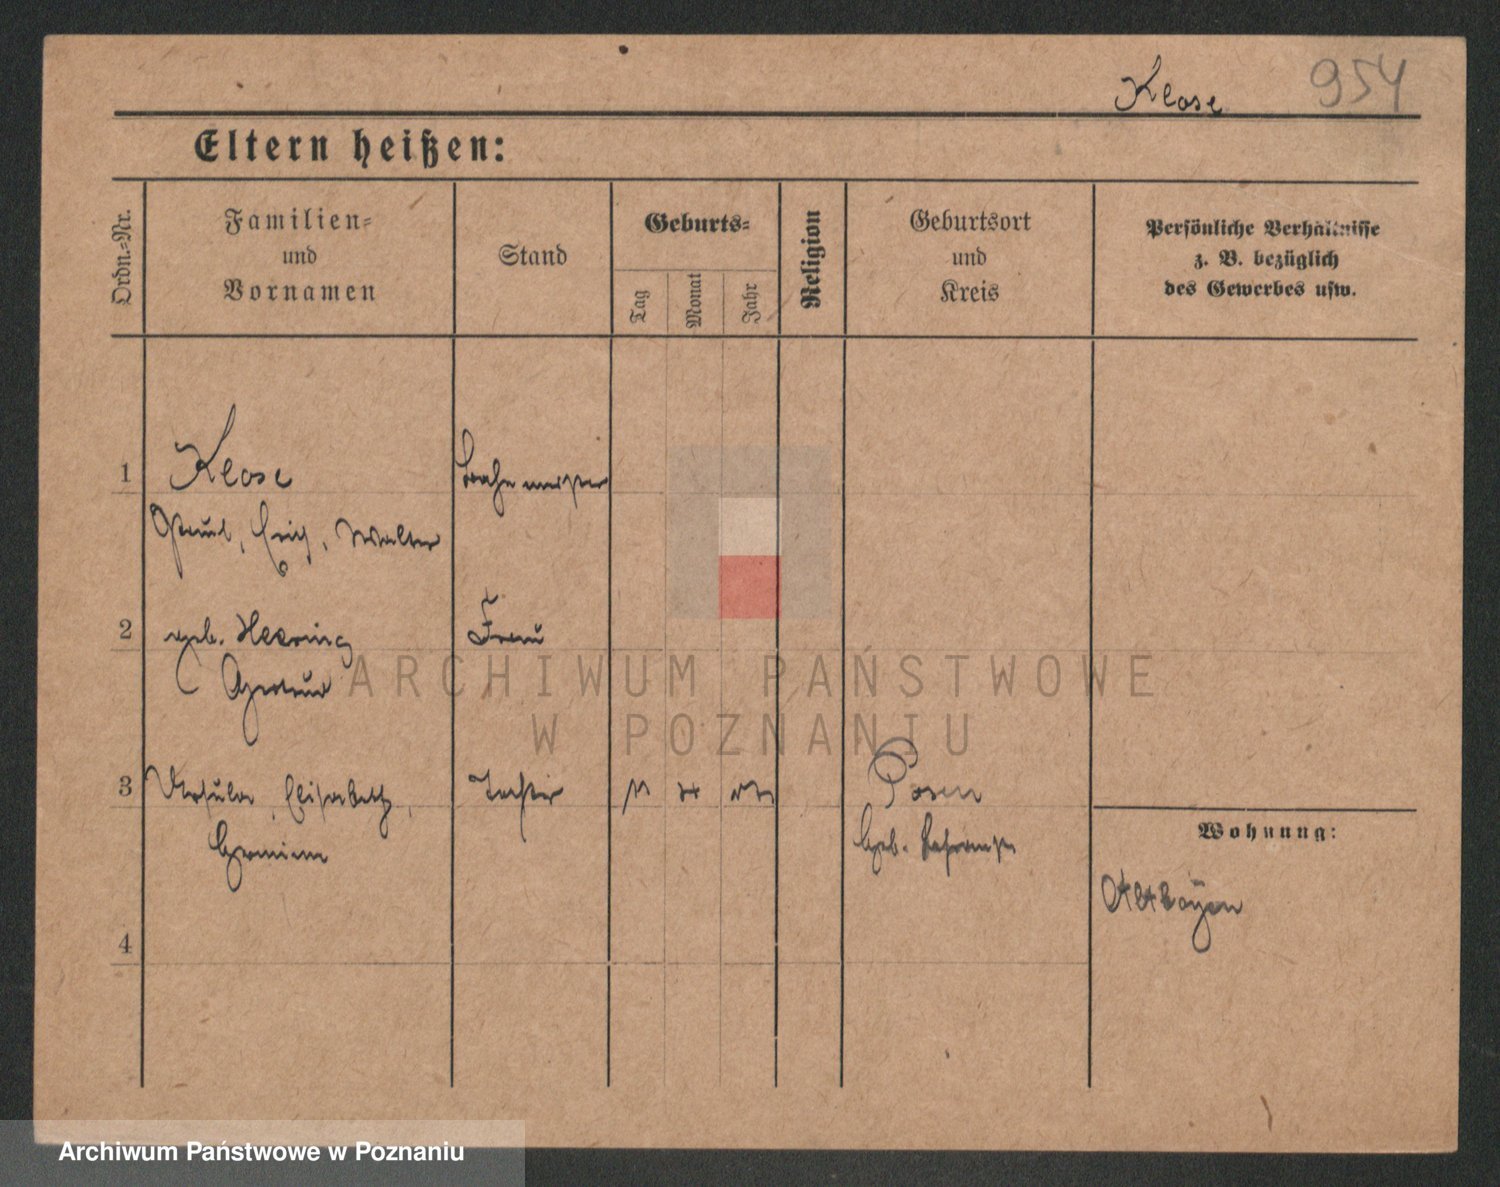 Klose 954
Eltern heißen:
Ordn.-Nr.
Familien-
und
Vornamen
Stand
Geburts-
Tag
Monat
Jahr
Religion
Geburtsort
und
Kreis
Persönliche Verhältnisse
z. B. bezüglich
des Gewerbes usw.
1 Klose
Paul, Erich, Walter
2 geb. Hering Frau
Gertrud
3 Ursula, Elisabeth, Tochter Posen
Geb.
4
Wohnung:
Altboyen
ARCHIWUM PAŃSTWOWE
W POZNANIU
Archiwum Państwowe w Poznaniu